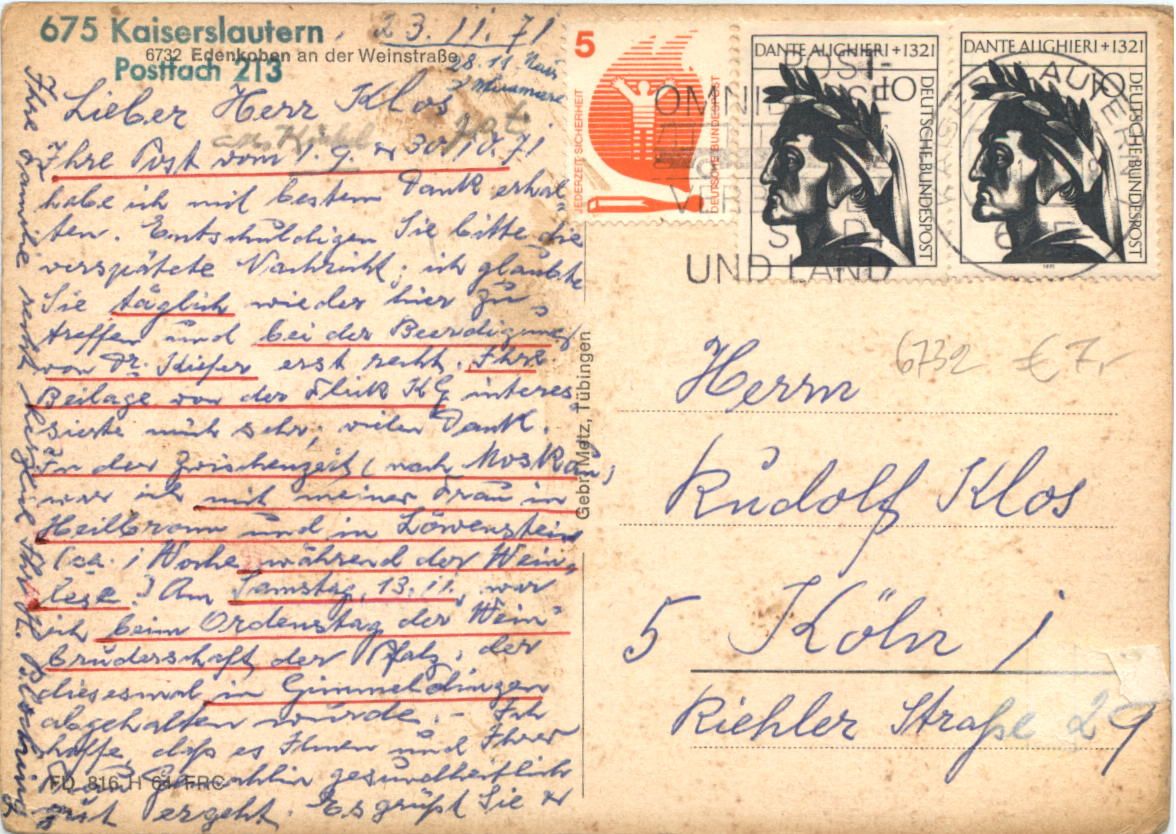 675 Kaiserslautern
Postfach 213
6732 Edenkoben an der Weinstraße
23.11.71
28.11
Lieber Herr Klos
Ihre Post vom 1.9. & 30.10.71
habe ich mit bestem Dank erhal
ten. Entschuldigen Sie bitte die
verspätete Nachricht; ich glaubte
Sie täglich wieder hier zu
treffen und bei der Beerdigung
von Dr. Kiefer erst recht. Ihre
Beilage von der Flick KG interes
sierte mich sehr, vielen Dank.
In der Zwischenzeit (nach Moskau)
war ich mit meiner Frau in
Heilbronn und in Löwenstein
(ca. 1 Woche während der Wein-
lese.) Am Samstag, 13.11. war
ich beim Ordenstag der Wein
bruderschaft der Pfalz, der
diesesmal in Gimmeldingen
abgehalten wurde. – Ich
hoffe, daß es Ihnen und Ihrer
Gemahlin gesundheitlich
gut ergeht. Es grüßt Sie &
Ihre Familie recht herzlich Ihr
FD 816 H 64 FRC
Gebr. Metz, Tübingen
5
JEDERZEIT SICHERHEIT
DEUTSCHE BUNDESPOST
DANTE ALIGHIERI + 1321
10
DEUTSCHE BUNDESPOST
DANTE ALIGHIERI + 1321
10
DEUTSCHE BUNDESPOST
1971
POST-
UND LAND
6732 € 7,-
Herrn
Rudolf Klos
5 Köln 1
Riehler Straße 29